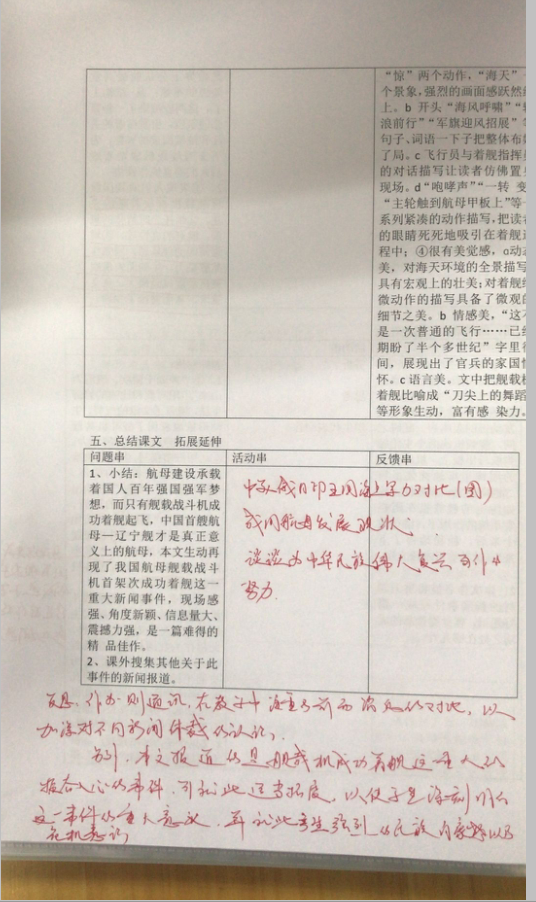 “惊”两个动作，“海天”
个景象，强烈的画面感跃然
上。b 开头“海风呼啸”“
浪前行”“军旗迎风招展”
句子、词语一下子把整体布
了局。c 飞行员与着舰指挥
的对话描写让读者仿佛置
现场。d“咆哮声”“一转 变
“主轮触到航母甲板上”等一
系列紧凑的动作描写，把读
的眼睛死死地吸引在着舰
程中；④很有美觉感，a动
美，对海天环境的全景描写
具有宏观上的壮美；对着舰
微动作的描写具备了微观的
细节之美。b 情感美，“这
是一次普通的飞行……已
期盼了半个多世纪”字里
间，展现出了官兵的家国
怀。c 语言美。文中把舰载
着舰比喻成“刀尖上的舞蹈
等形象生动，富有感 染力。
五、总结课文 拓展延伸
问题串 活动串 反馈串
1、小结：航母建设承载
着国人百年强国强军梦
想，而只有舰载战斗机成
功着舰起飞，中国首艘航
母—辽宁舰才是真正意
义上的航母，本文生动再
现了我国航母舰载战斗
机首架次成功着舰这一
重大新闻事件，现场感
强、角度新颖、信息量大、
震撼力强，是一篇难得的
精 品佳作。
2、课外搜集其他关于此
事件的新闻报道。
海上军力对比（图）
我国航母发展现状
谈谈为中华民族伟大复兴
努力.
反思 作为一则通讯，在教学中 注重与前面消息的对比，以
加深对不同新闻体裁的认识。
另外，本文报道的是舰载机成功着舰这一
的事件，可 适当拓展，以使学生深刻
这一事件的重大意义，并
危机意识